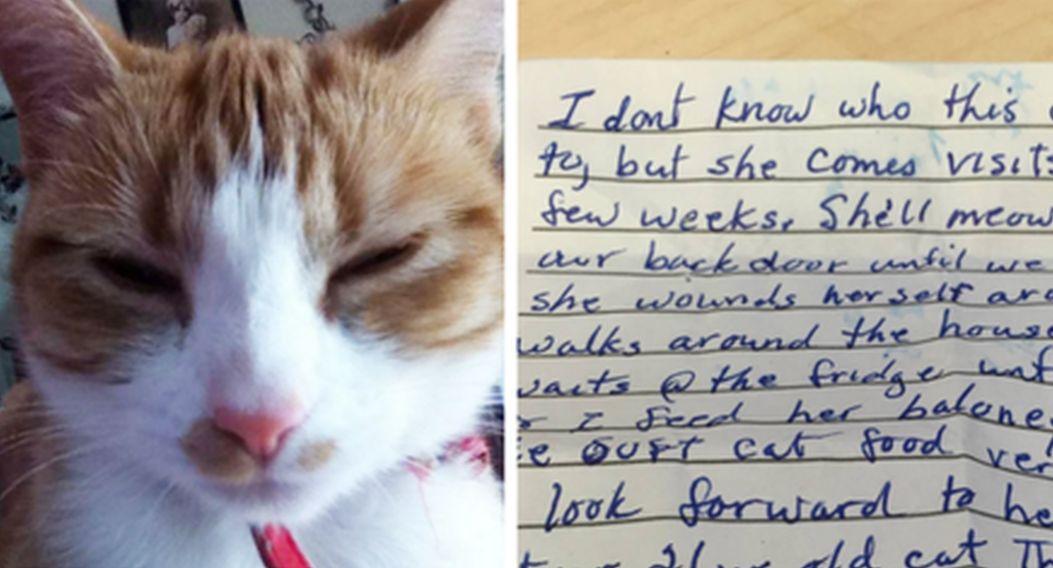 I dont know who this
to, but she comes visits
few weeks. She'll meow
our back door until we
she wounds herself
walks around the house
waits @ the fridge
I feed her
cat food
look forward to
old cat